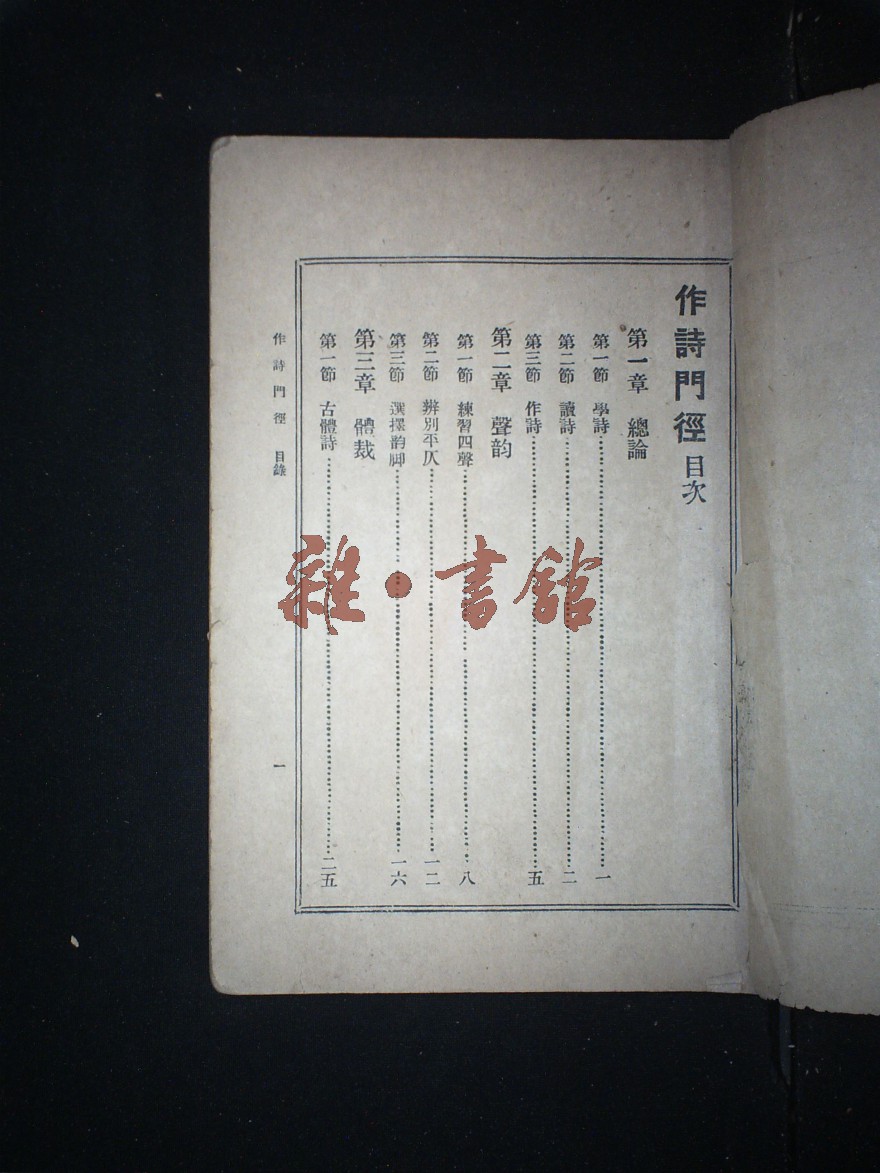 作詩門徑 目次
第一章 總論
第一節 學詩……一
第二節 讀詩……二
第三節 作詩……五
第二章 聲韵
第一節 練習四聲……八
第二節 辨別平仄……一二
第三節 選擇韵脚……一六
第三章 體裁
第一節 古體詩……二五
作詩門徑 目錄 一
雜·書館